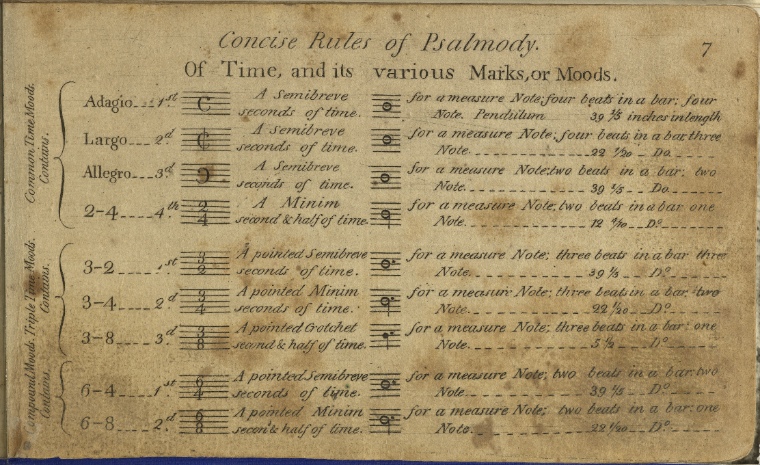 Concise Rules of Psalmody.
7
Of Time, and its various Marks, or Moods.
Common Time Moods. Contains.
Adagio 1st C A Semibreve for a measure Note; four beats in a bar; four
seconds of time. Note. Pendulum 39 1/5 inches in length
Largo 2d C A Semibreve for a measure Note; four beats in a bar three
seconds of time. Note. 22 1/20 Do
Allegro 3d A Semibreve for a measure Note; two beats in a bar; two
seconds of time. Note. 39 1/5 Do
2-4 4th 2 4 A Minim for a measure Note, two beats in a bar one
second & half of time. Note. 12 4/10 Do
Triple Time Moods. Contains.
3-2 1st 3 2 A pointed Semibreve for a measure Note; three beats in a bar three
seconds of time. Note. 39 1/5 Do
3-4 2d 3 4 A pointed Minim for a measure Note; three beats in a bar, two
seconds of time. Note. 22 1/20 Do
3-8 3d 3 8 A pointed Crotchet for a measure Note; three beats in a bar; one
second & half of time. Note. 5 1/2 Do
Compound Moods. Contains.
6-4 1st 6 4 A pointed Semibreve for a measure Note; two beats in a bar two
seconds of time. Note. 39 1/5 Do
6-8 2d 6 8 A pointed Minim for a measure Note; two beats in a bar; one
secon & half of time. Note. 22 1/20 Do